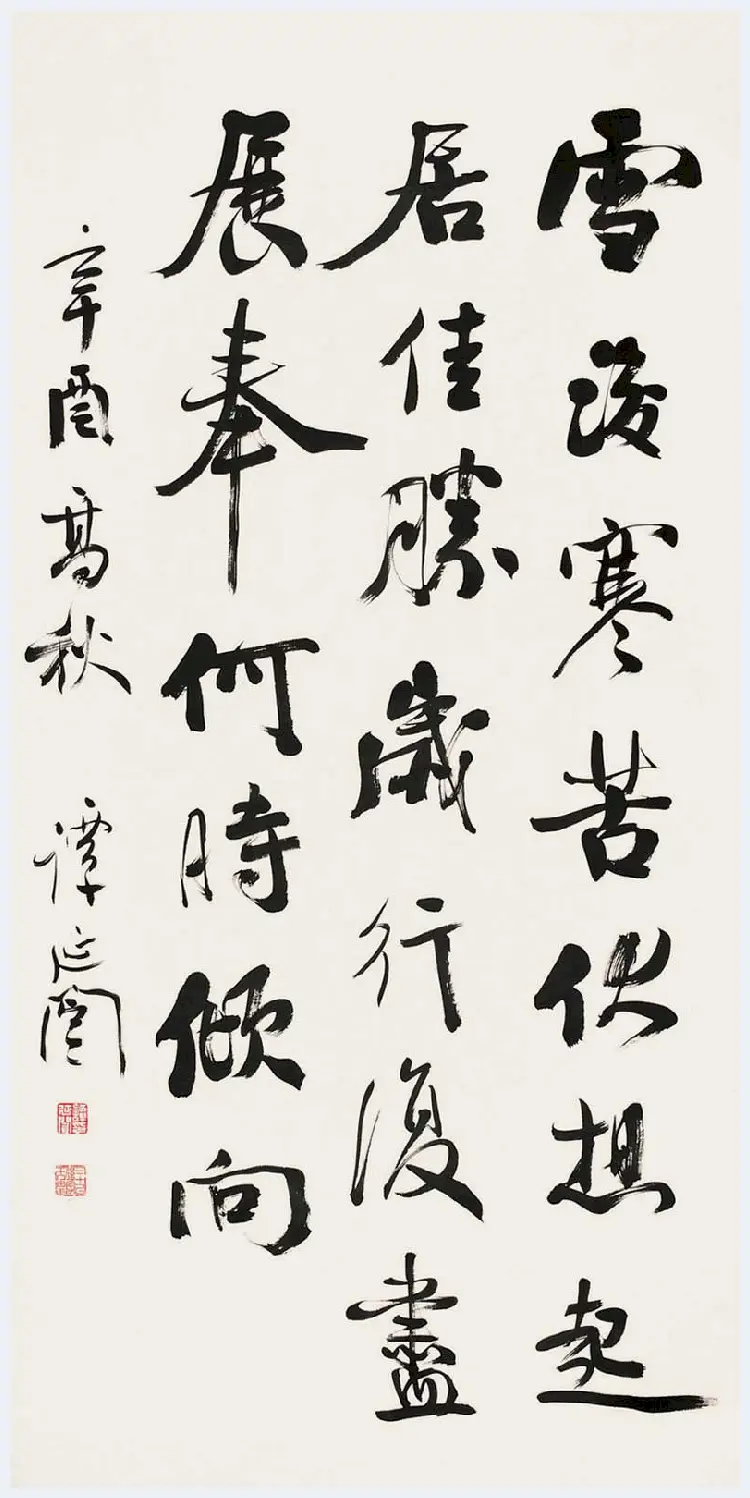 雪後寒苦伏想起
居佳勝歲行復盡
展奉何時傾向
辛酉高秋
譚延闓